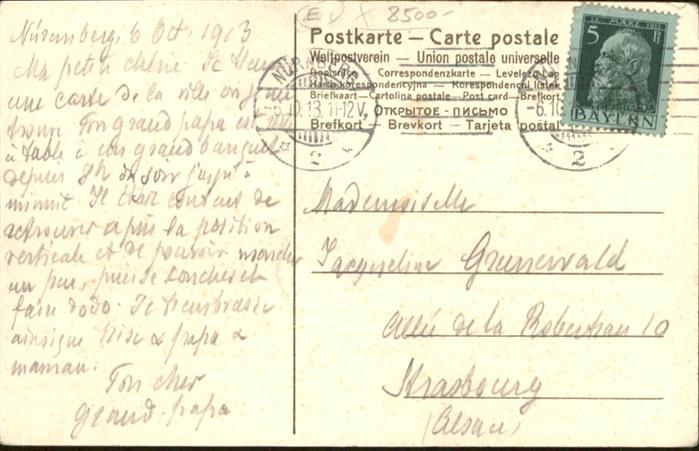 Nürnberg, 6 Oct. 1913
Ma petite chérie. Je
une carte de la ville où je me
trouve Ton grand papa est
à table à un grand banquet
depuis 8h du soir jusqu'à
minuit. Il était content de
retrouver la position
verticale et de pouvoir marcher
un peu, puis se coucher et
faire dodo. Je t'embrasse
ainsi que Lise & papa &
maman.
Ton cher
grand-papa
(E) 8500-
Postkarte – Carte postale
Weltpostverein – Union postale universelle
Dopisnice Correspondenzkarte – Levelező-Lap
korespondencyjna – Korespondenčni listek
Briefkaart – Cartolina postale – Post card – Brefkort
ОТКРЫТОЕ - ПИСЬМО
Brefkort – Brevkort – Tarjeta postal
12. MÄRZ 1911
5 Pf
BAYERN
NÜRNBERG
10.13. 11-12V.
2
-6.10.
2
Mademoiselle
Jacqueline Grunerwald
Allée de la Robertsau 10
Strasbourg
(Alsace)